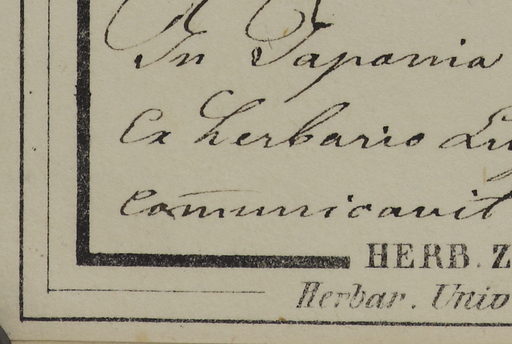 In Japonia
Ex herbario Lu
Comunicavit
HERB. Z
Herbar. Univ